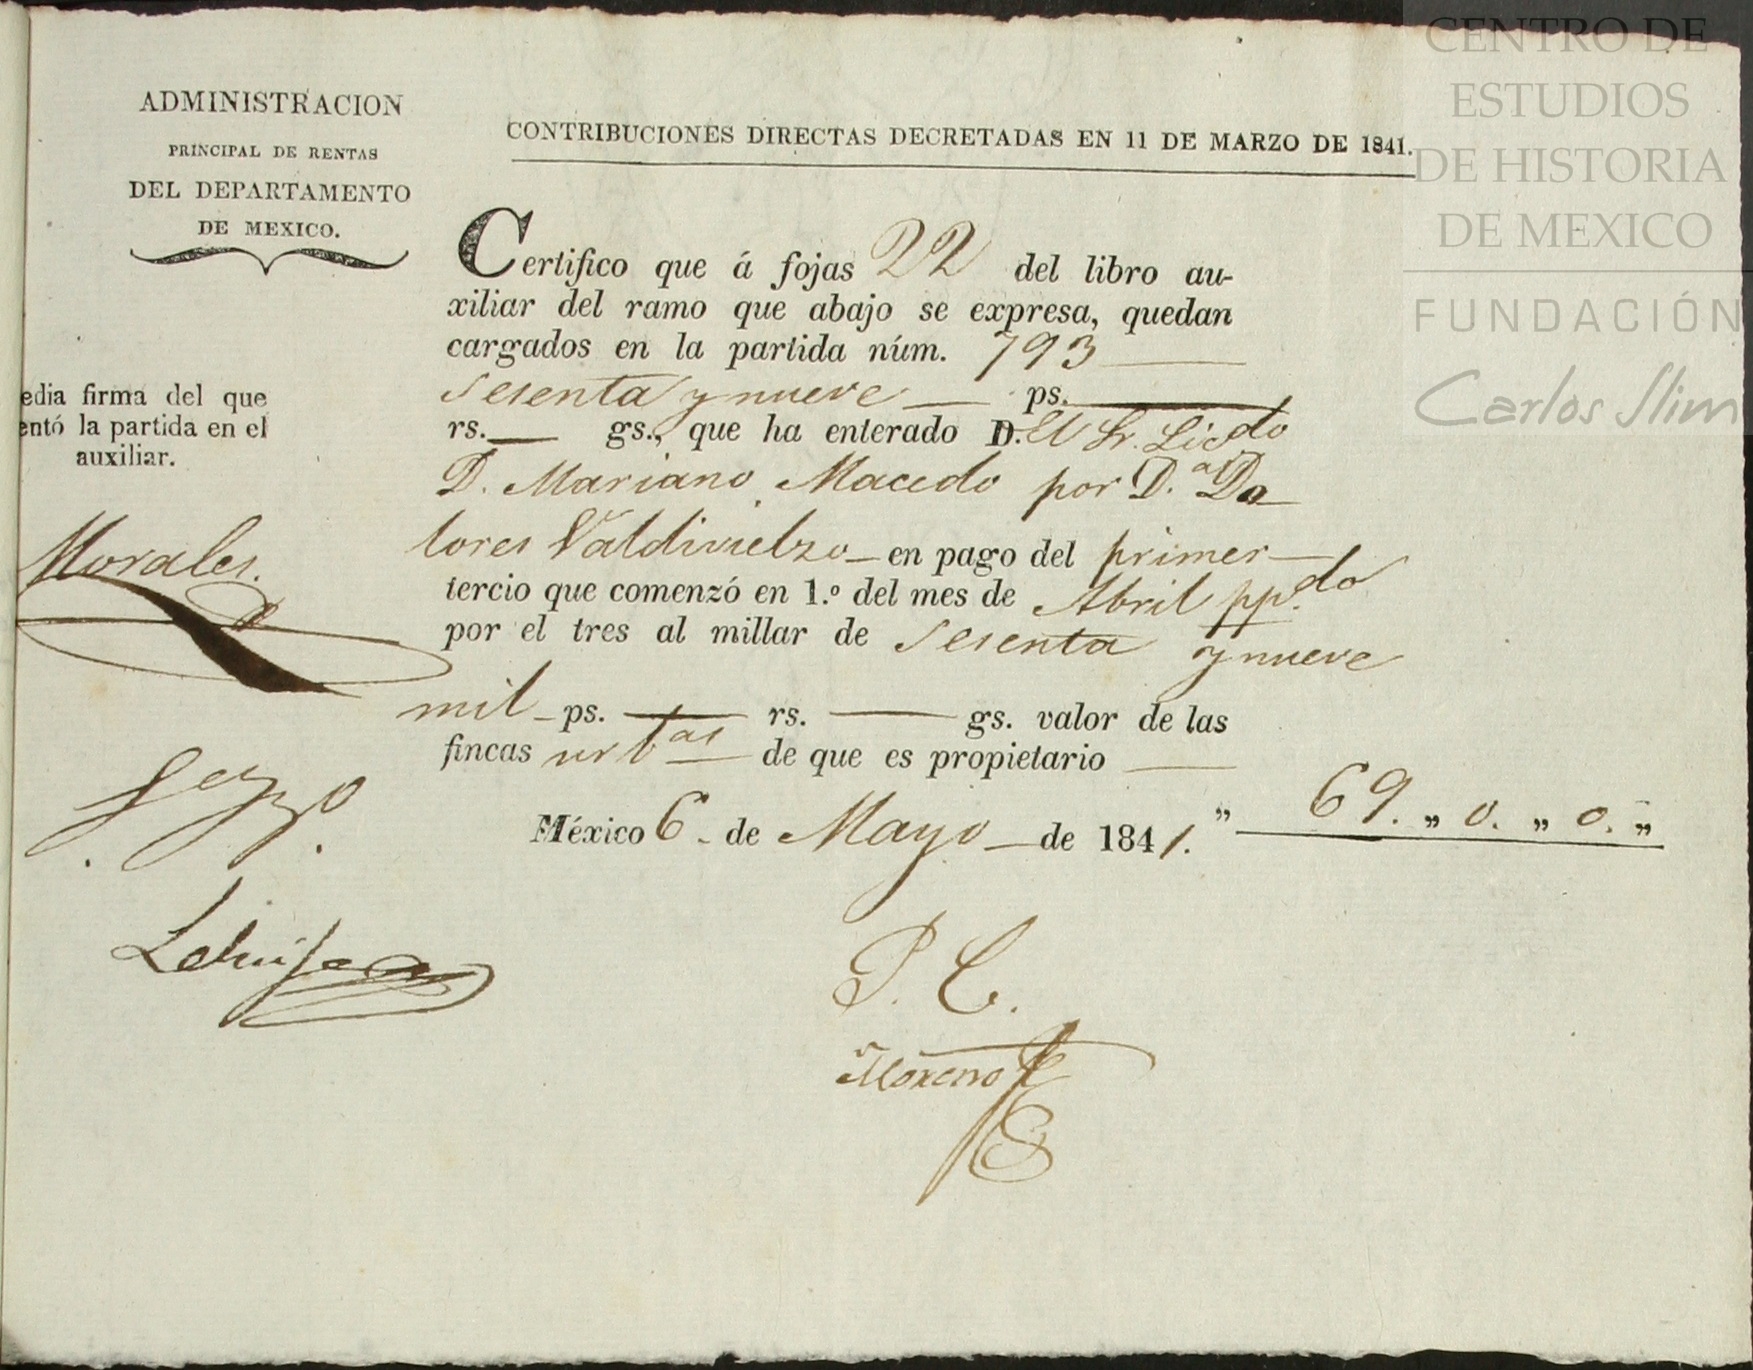 ADMINISTRACION
PRINCIPAL DE RENTAS
DEL DEPARTAMENTO
DE MEXICO.
CONTRIBUCIONES DIRECTAS DECRETADAS EN 11 DE MARZO DE 1841.
Certifico que á fojas 22 del libro au-
xiliar del ramo que abajo se expresa, quedan
cargados en la partida núm. 793
Sesenta y nueve ps.
rs. gs., que ha enterado D. El Sr. Licdo
D. Mariano Macedo por D.a Do
lores Valdivielzo en pago del primer
tercio que comenzó en 1.º del mes de Abril pp.do
por el tres al millar de Sesenta y nueve
mil ps. rs. gs. valor de las
fincas urbas de que es propietario
México 6 de Mayo de 1841. „ 69. „ 0. „ 0. „
edia firma del que
entó la partida en el
auxiliar.
Morales.
P. C.
Moreno
CENTRO DE
ESTUDIOS
DE HISTORIA
DE MEXICO
FUNDACIÓN
Carlos Slim